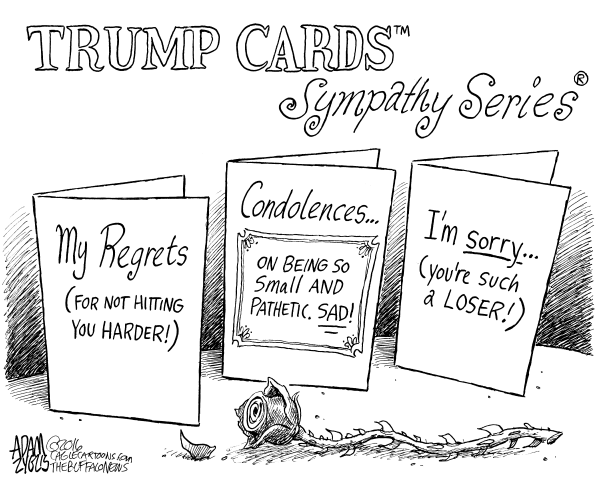 TRUMP CARDS™
Sympathy Series®
My Regrets
(FOR NOT HITTING
YOU HARDER!)
Condolences...
ON BEING SO
Small AND
PATHETIC. SAD!
I'm sorry...
(you're such
a LOSER!)
ADAM
ZYGLIS
©2016
CAGLECARTOONS.com
THE BUFFALO NEWS